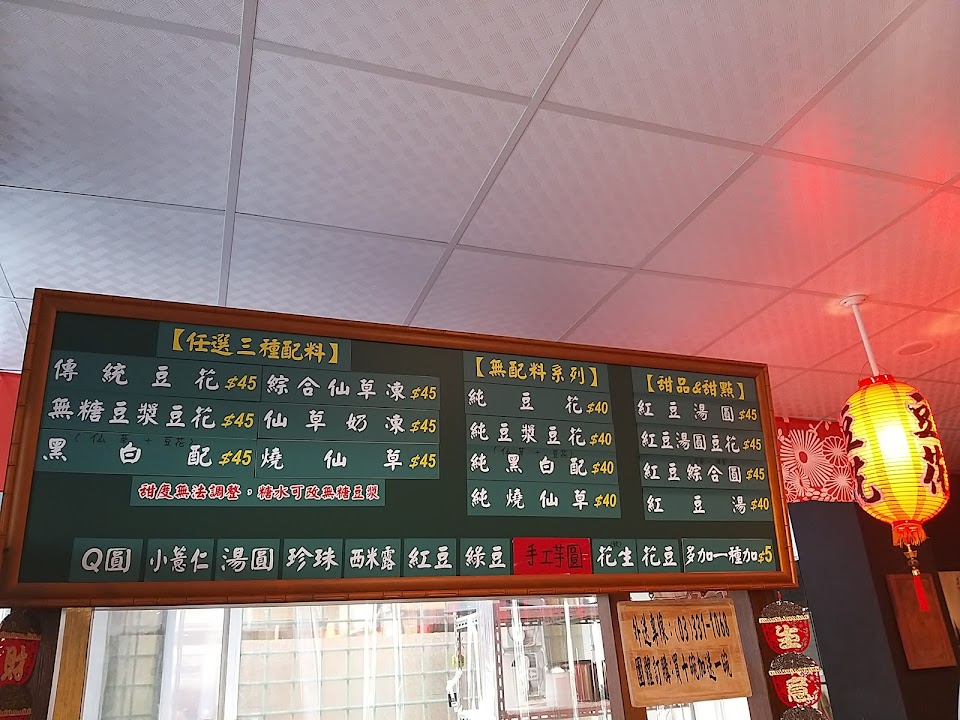 【任選三種配料】
傳統豆花 $45
無糖豆漿豆花 $45
(仙草+豆花)
黑白配 $45
綜合仙草凍 $45
仙草奶凍 $45
燒仙草 $45
甜度無法調整,糖水可改無糖豆漿
【無配料系列】
純豆花 $40
純豆漿豆花 $40
(仙草+豆花)
純黑白配 $40
純燒仙草 $40
【甜品&甜點】
紅豆湯圓 $45
紅豆湯圓豆花 $45
紅豆綜合圓 $45
紅豆湯 $40
Q圓 小薏仁 湯圓 珍珠 西米露 紅豆 綠豆 手工芋圓 花生 花豆 多加一種加$5
外送專線:03-331-1068
團體訂購,買十碗加送一碗
豆花
豆花
財
生
意